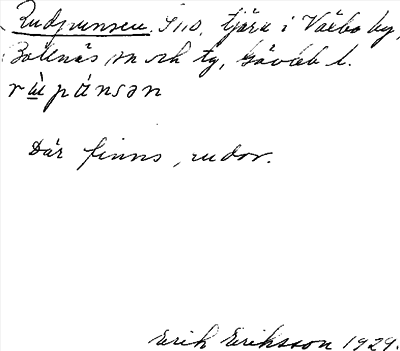 Rudpunsen. S110, tjärn i Växbo by,
Bollnäs sn och tg, Gävleb l.
rùpánsən
Där finns rudor.
Erik Eriksson 1929.